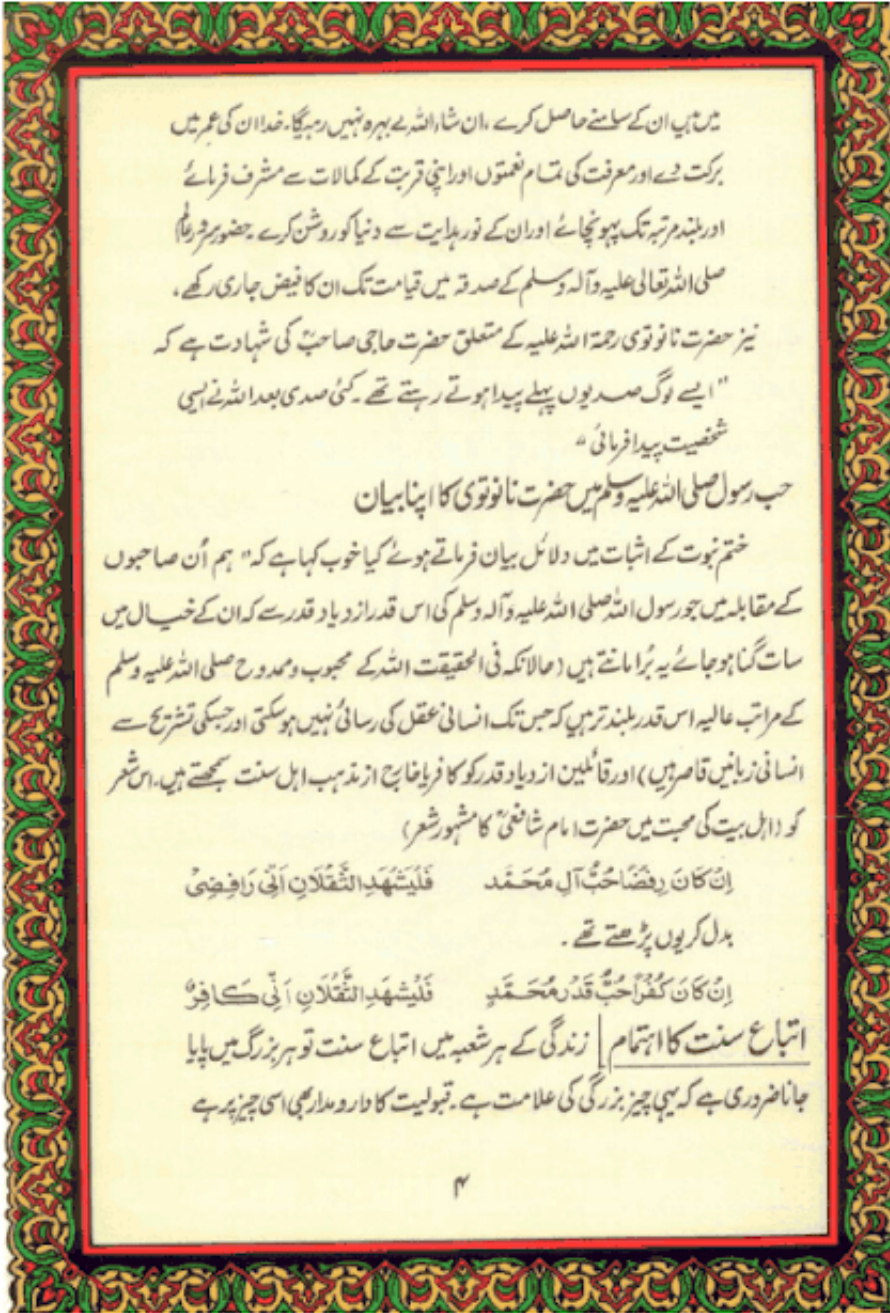 میں ہیں ان کے سامنے حاصل کرے، ان شاء اللہ بے بہرہ نہیں رہیگا۔ خدا ان کی عمر میں
برکت دے اور معرفت کی تمام نعمتوں اور اپنی قربت کے کمالات سے مشرف فرمائے
اور بلند مرتبہ تک پہونچائے اور ان کے نور ہدایت سے دنیا کو روشن کرے۔ حضور سرور عالم
صلی اللہ تعالی علیہ وآلہ وسلم کے صدقہ میں قیامت تک ان کا فیض جاری رکھے،
نیز حضرت نانوتوی رحمۃ اللہ علیہ کے متعلق حضرت حاجی صاحبؒ کی شہادت ہے کہ
"ایسے لوگ صدیوں پہلے پیدا ہوتے رہتے تھے۔ کئی صدی بعد اللہ نے ایسی
شخصیت پیدا فرمائی"
حب رسول صلی اللہ علیہ وسلم میں حضرت نانوتوی کا اپنا بیان
ختم نبوت کے اثبات میں دلائل بیان فرماتے ہوئے کیا خوب کہا ہے کہ" ہم اُن صاحبوں
کے مقابلہ میں جو رسول اللہ صلی اللہ علیہ وآلہ وسلم کی اس قدر ازدیاد قدر سے کہ ان کے خیال میں
سات گنا ہو جائے یہ بُرا مانتے ہیں (حالانکہ فی الحقیقت اللہ کے محبوب و ممدوح صلی اللہ علیہ وسلم
کے مراتب عالیہ اس قدر بلند تر ہیں کہ جس تک انسانی عقل کی رسائی نہیں ہو سکتی اور جسکی تشریح سے
انسانی زبانیں قاصر ہیں) اور قائلین ازدیاد قدر کو کافر یا خارج از مذہب اہل سنت سمجھتے ہیں۔ اس شعر
کو (اہل بیت کی محبت میں حضرت امام شافعیؒ کا مشہور شعر)
اِنْ کَانَ رِفْضًا حُبُّ آلِ مُحَمَّد فَلْیَشْهَدِ الثَّقَلَانِ اَنِّی رَافِضِیْ
بدل کر یوں پڑھتے تھے۔
اِنْ کَانَ کُفْرًا حُبُّ قَدْرِ مُحَمَّدٍ فَلْیَشْهَدِ الثَّقَلَانِ اَنِّی کَافِرٌ
اتباع سنت کا اہتمام | زندگی کے ہر شعبہ میں اتباع سنت تو ہر بزرگ میں پایا
جانا ضروری ہے کہ یہی چیز بزرگی کی علامت ہے۔ قبولیت کا دارومدار بھی اسی چیز پر ہے
۴